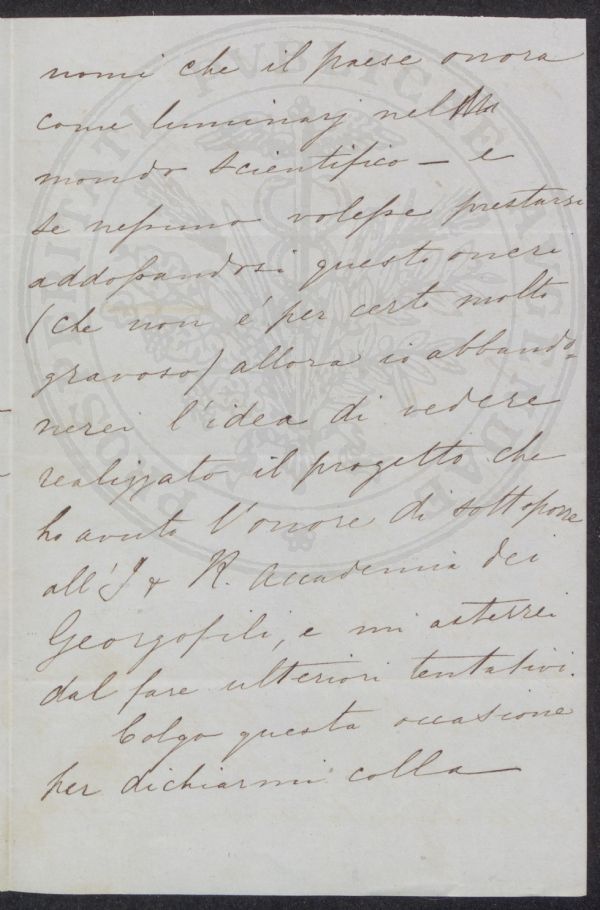 nomi che il paese onora
come luminarj nel
mondo scientifico — e
se nessuno volesse prestarsi
addossandosi questo onere
(che non é per certo molto
gravoso) allora io abbando=
nerei l'idea di vedere
realizzato il progetto che
ho avuto l'onore di sottoporre
all' I & R. Accademia dei
Georgofili, e mi asterrei
dal fare ulteriori tentativi.
Colgo questa occasione
per dichiarmi colla
PROSPERITATI PVBLICAE AVGENDAE